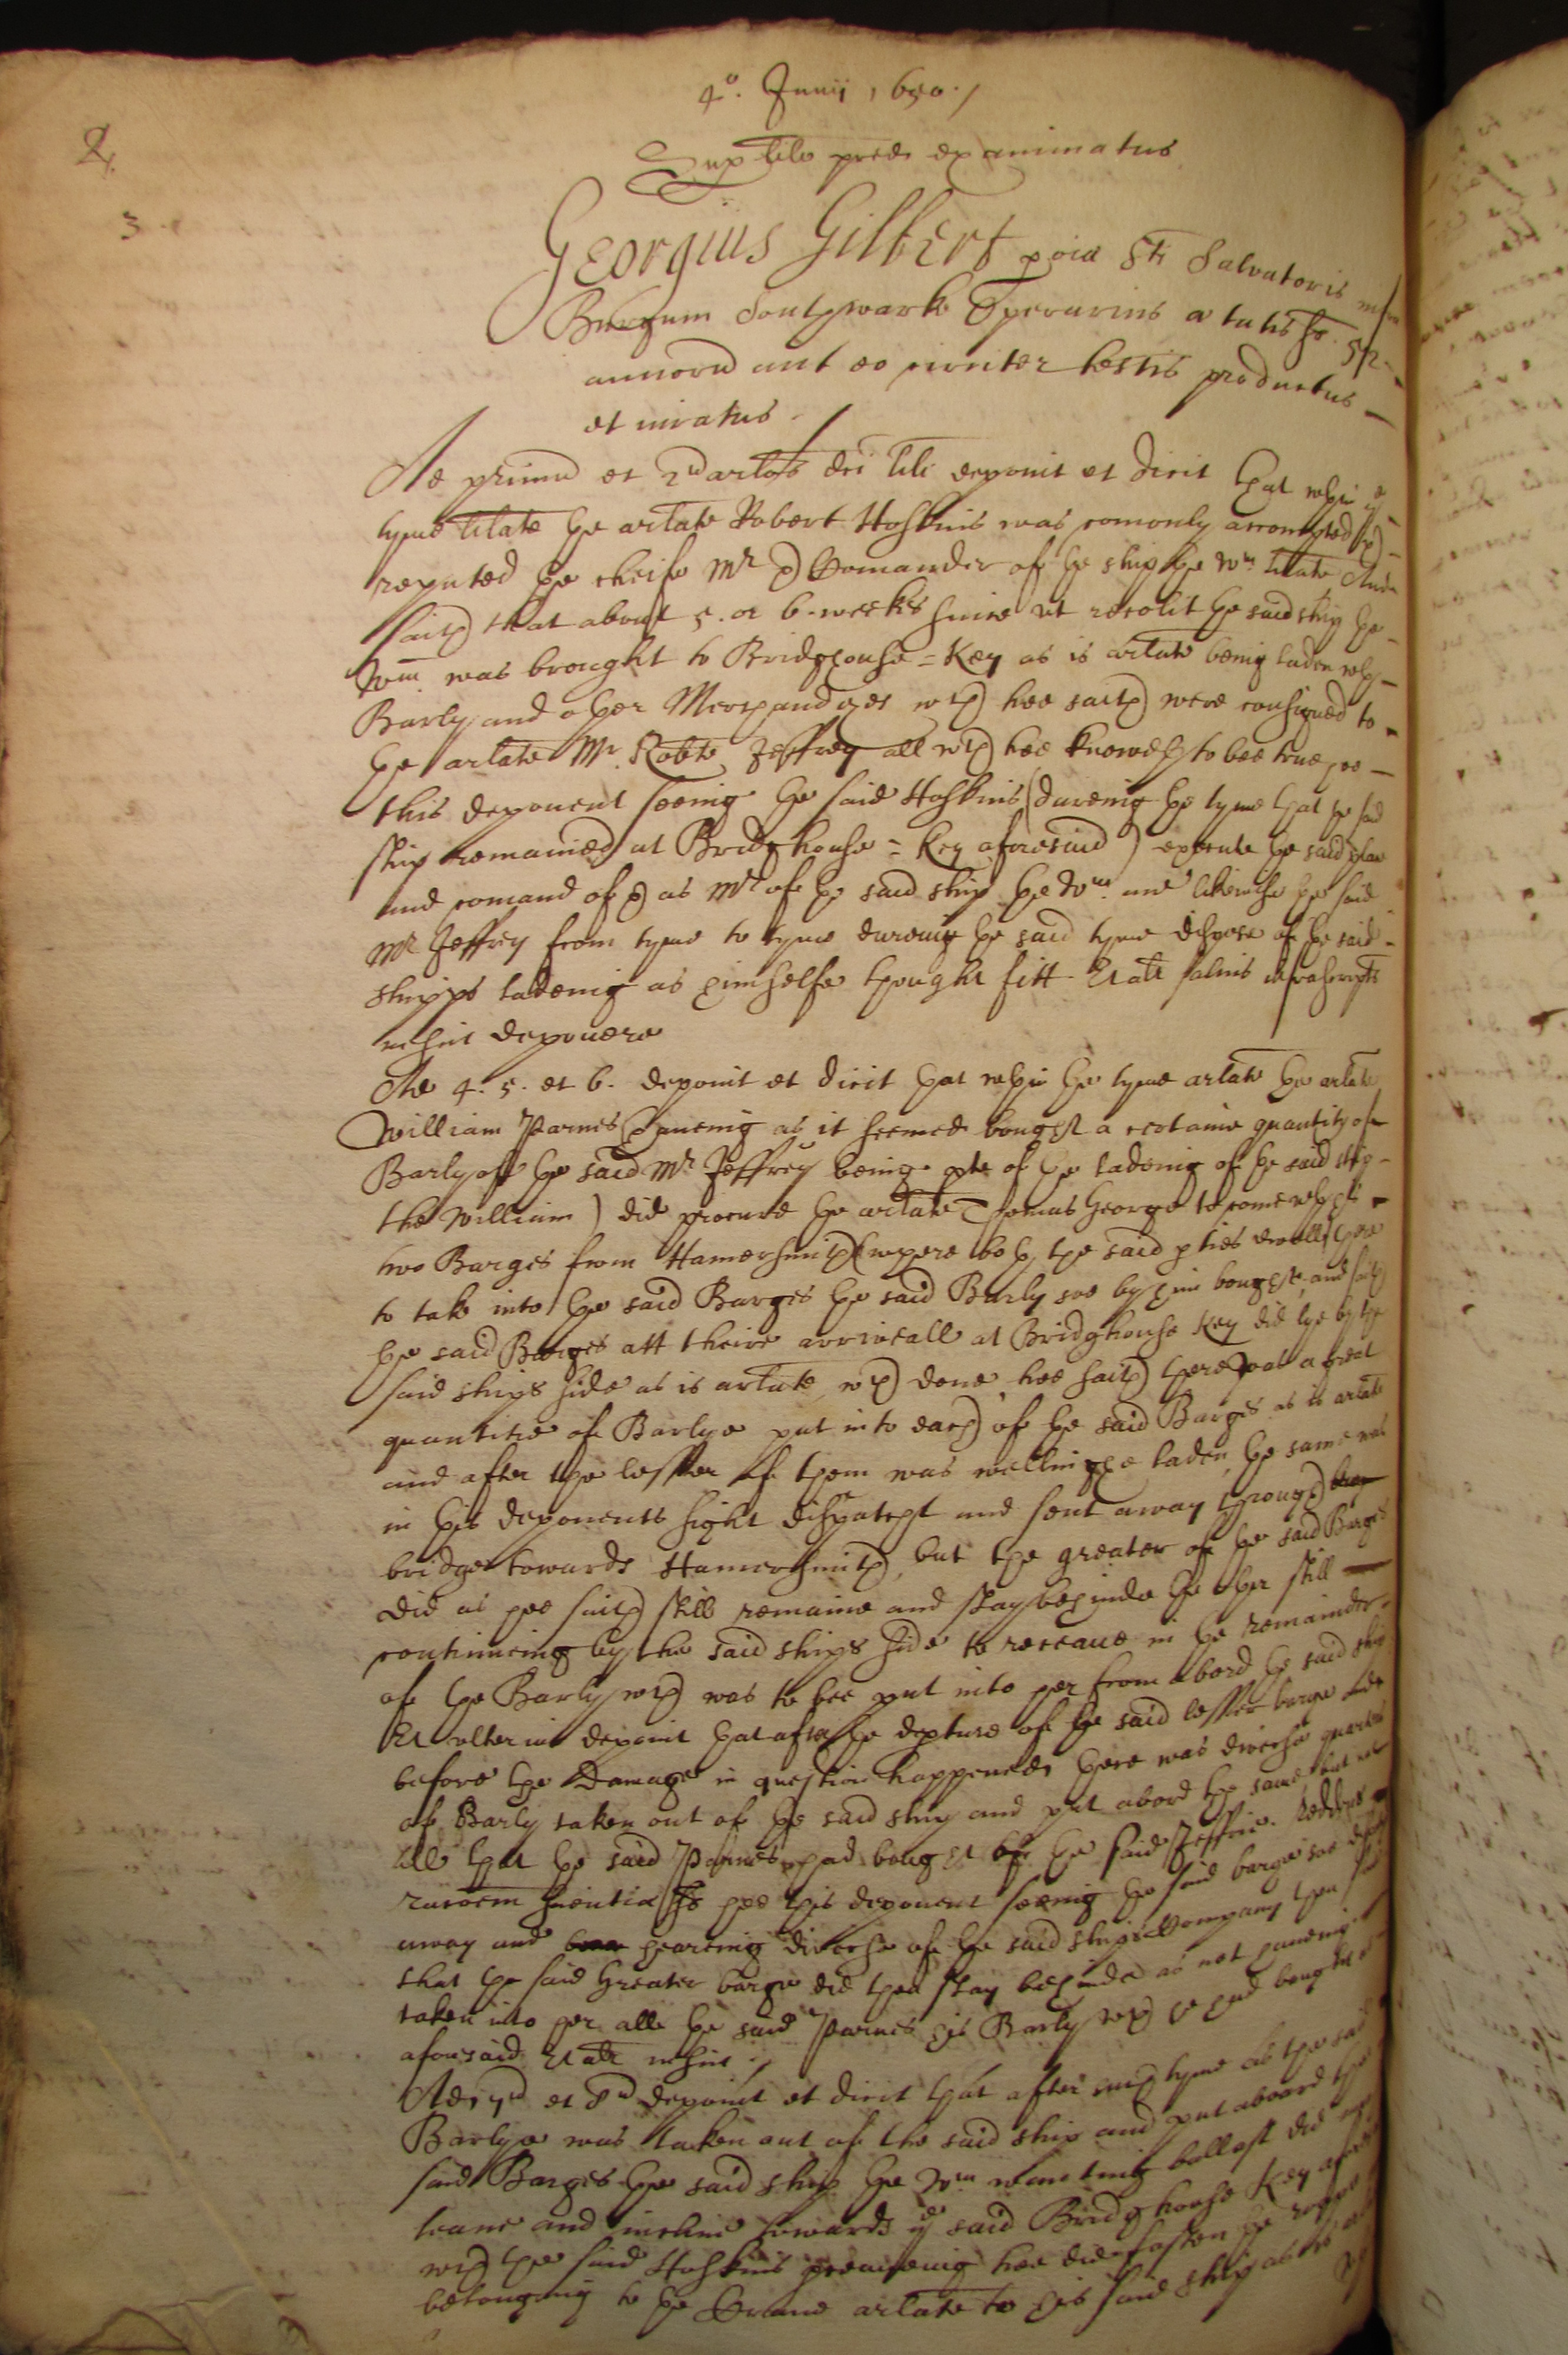 2.
4o. Junii 1650./
Sup lilo pred examinatus
3
Georgius Gilbert poia Sti Salvatoris infra
Burgum Southwarke Operarius ætatis sæ. 52.
annorũ aut eo circiter testis productus
et iuratus ./
Ad primũ et 2ũ arlos dci lili deponit et dicit that wthin ye
tyme lilate the arlate Robert Hoskins was comonly accompted &
reputed the cheife Mr & Comander of the ship the Wm. lilate And
saith that about 5. or 6. weeks since ut recolit the said ship the
Wm. was brought to Bridghouse = Key as is arlate being laden wth
Barly and other Merchandizes wch hee saith were consigned to
the arlate Mr. Robte Jeffrey all wch hee knoweth to bee true hee
this deponent seeing the said Hoskins (dureing the tyme that the said
ship remained at Bridghouse = Key aforesaid) execute the said place
and comand of & as Mr of the said ship the Wm. and likewise the said
Mr Jeffrey from tyme to tyme dureing the said tyme dispose of the said
shipps ladeing as himselfe thought fitt Et alr salvis infrascriptis
nescit deponere
Ad 4. 5. et 6. deponit et dicit that wthin the tyme arlate the arlate
William Parnes (haueing as it seemed bought a certaine quantity of
Barly of the said Mr Jeffrey being pte of the ladeing of the said ship
the William) did procure the arlate Thomas George to come wth his
two Barges from Hamersmith (where both the said pties dwell) there
to take into the said Barges the said Barly soe by him bought, and saith
the said Barges att theire arriveall at Bridghouse Key did lye by the
said ships side as is arlate, wch done, hee saith there was a great
quantitie of Barlye put into each of the said Barges as is arlate
and after the lesser of them was wellnighe laden, the same was
in this deponents sight dispatcht and sent away through
bridge towards Hamersmith, but the greater of the said Barges
did as hee saith still remaine and stay behinde the other still
continueing by the said ships side to receaue in the remainder
of the Barly wch was to bee put into her from abord the said ship
Et ulterius deponit that after the depture of the said lesser barge and
before the Damage in question happened, there was diverse quarters
of Barly taken out of the said ship and put abord the same, but not
all that the said Parnes had bought of the said Jeffrie. Reddens
racoem scientiæ sæ hee this deponent seeing the said barge soe
away and heareing diverse of the said ships Company then say
that the said Greater barge did then stay behinde as not haueing
taken into her all the said Parnes his Barly wch he had bought as
aforesaid. Et alr nescit ./
Ad 7ũ et 8ũ deponit et dicit that after such tyme as the said
Barlye was taken out of the said ship and put aboard the
said Barges the said ship the Wm wanting ballast did
leane and incline towards ye said Bridghouse Key
wch the said Hoskins hee did fasten the rope
belonging to the Crane arlate to his said ship as is